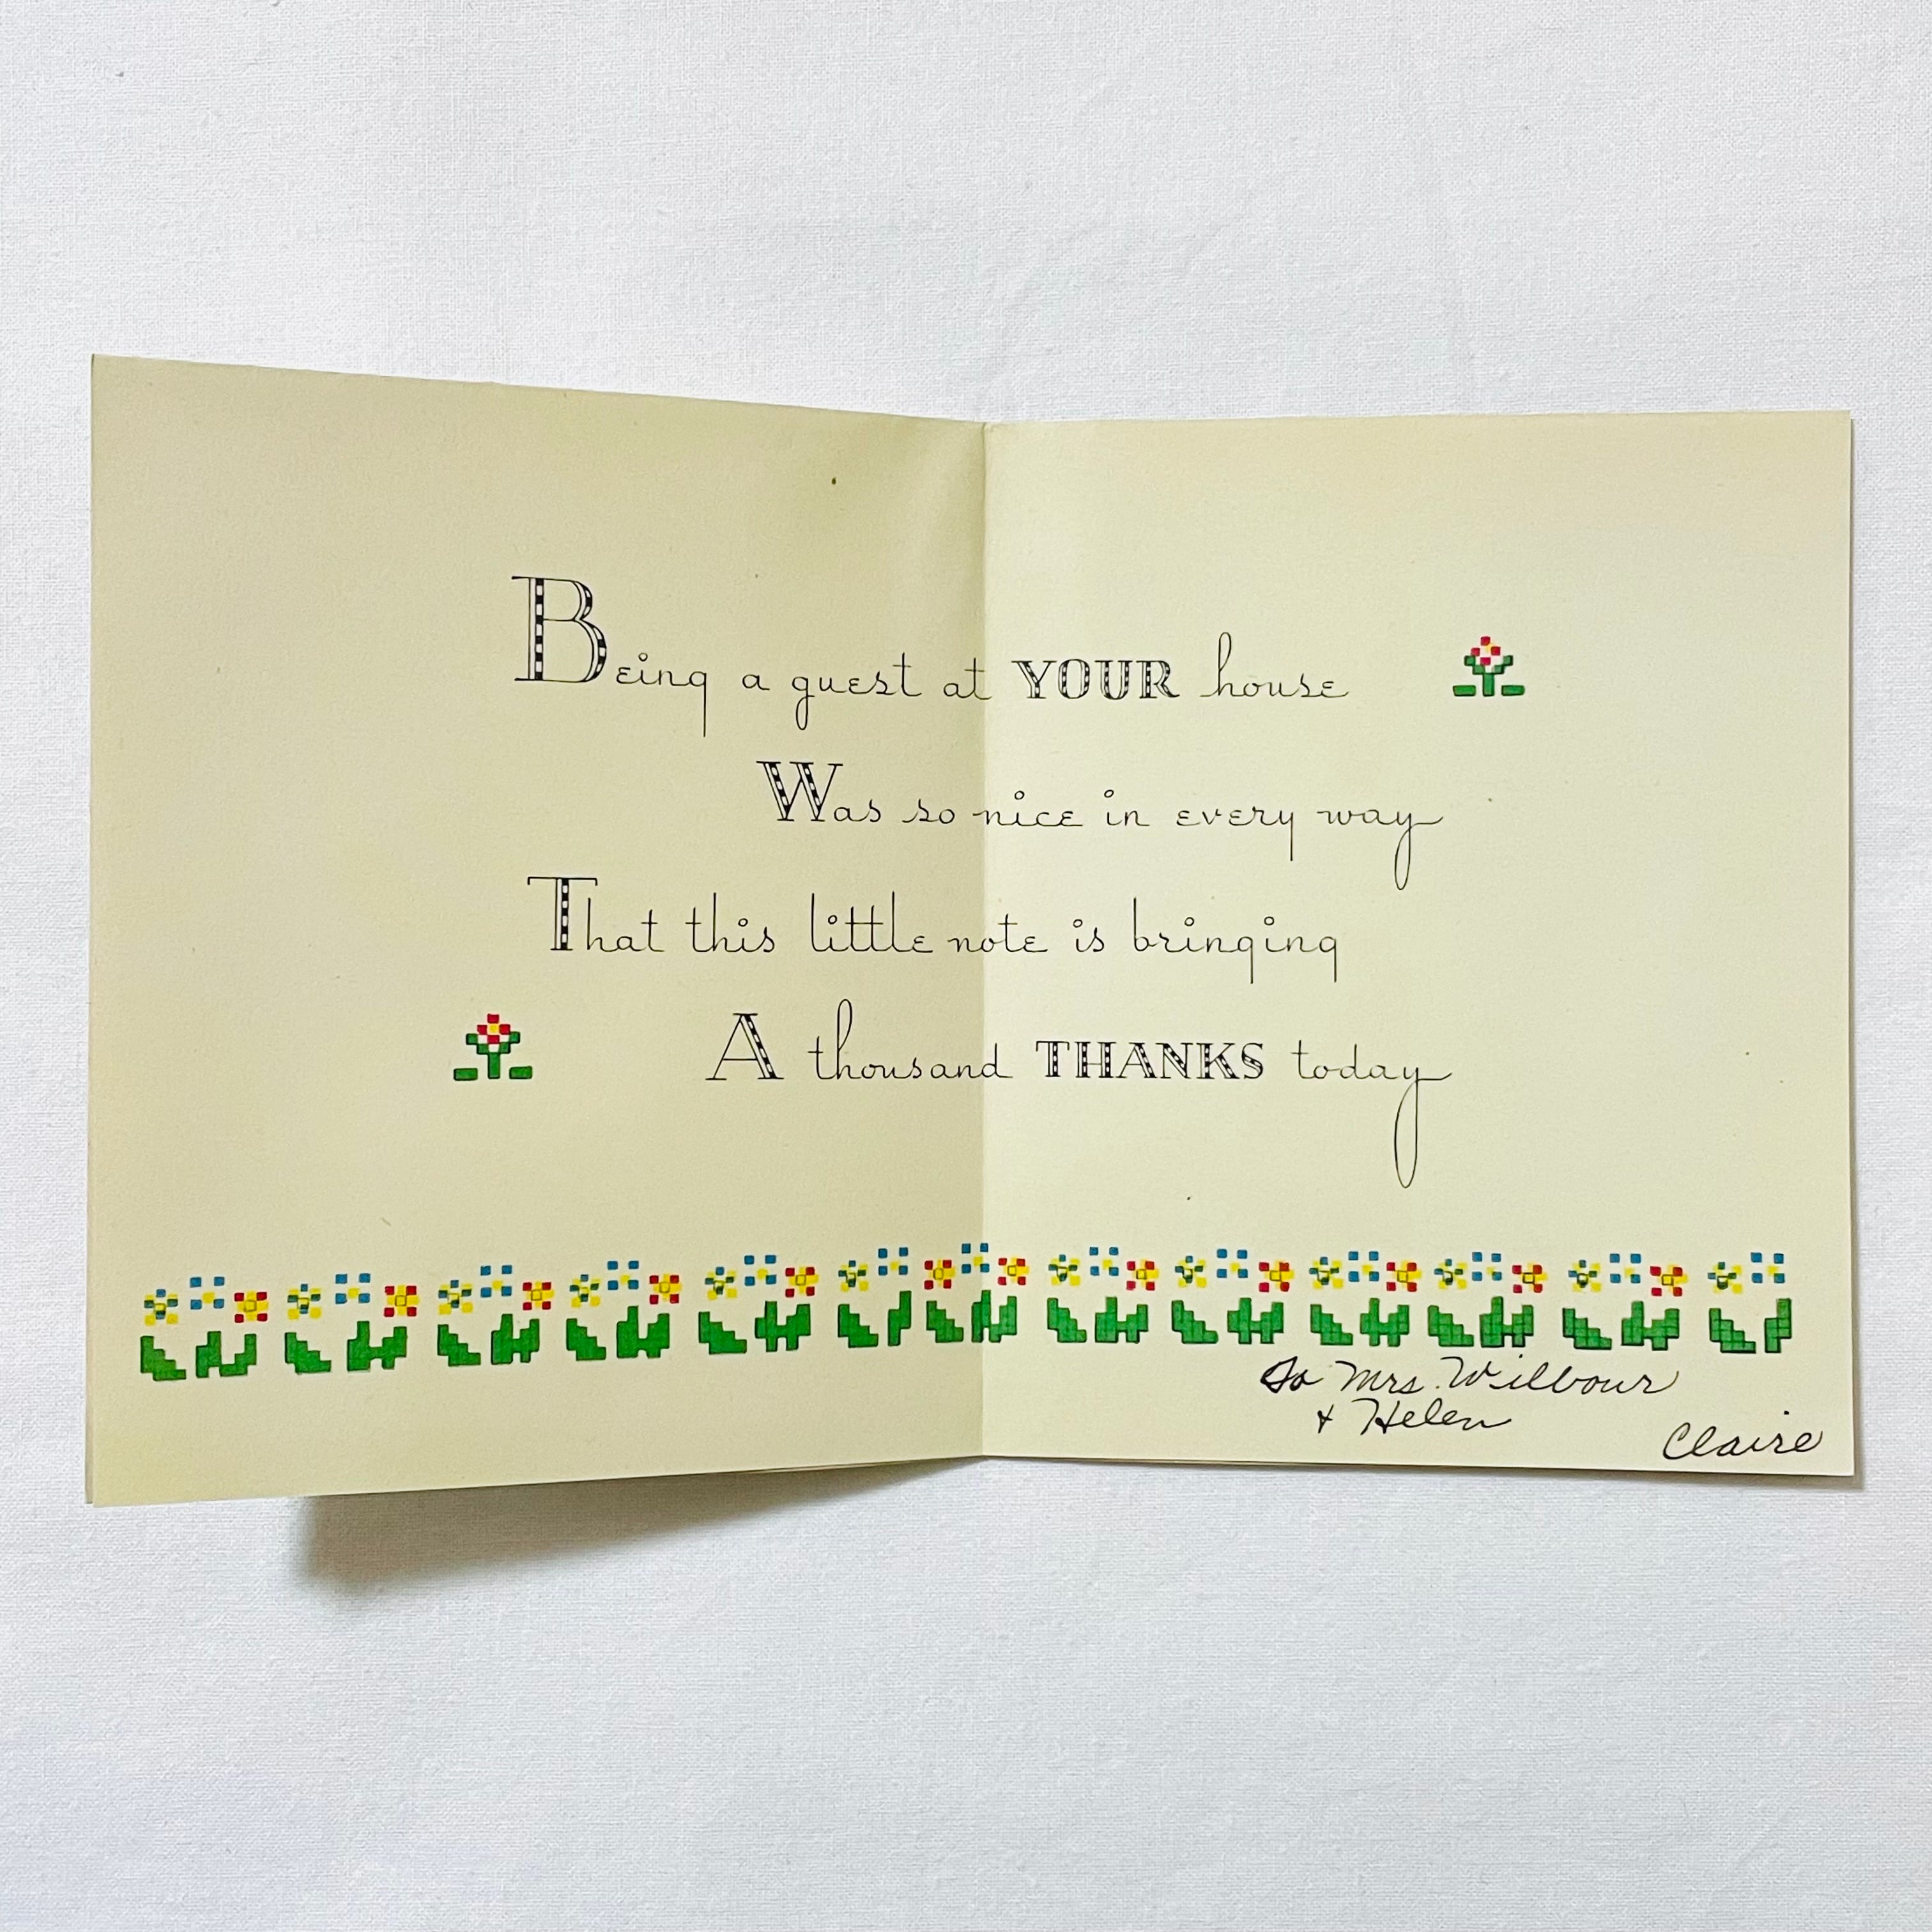 Being a guest at YOUR house
Was so nice in every way
That this little note is bringing
A thousand THANKS today
To Mrs. Wilbour
+ Helen
Claire